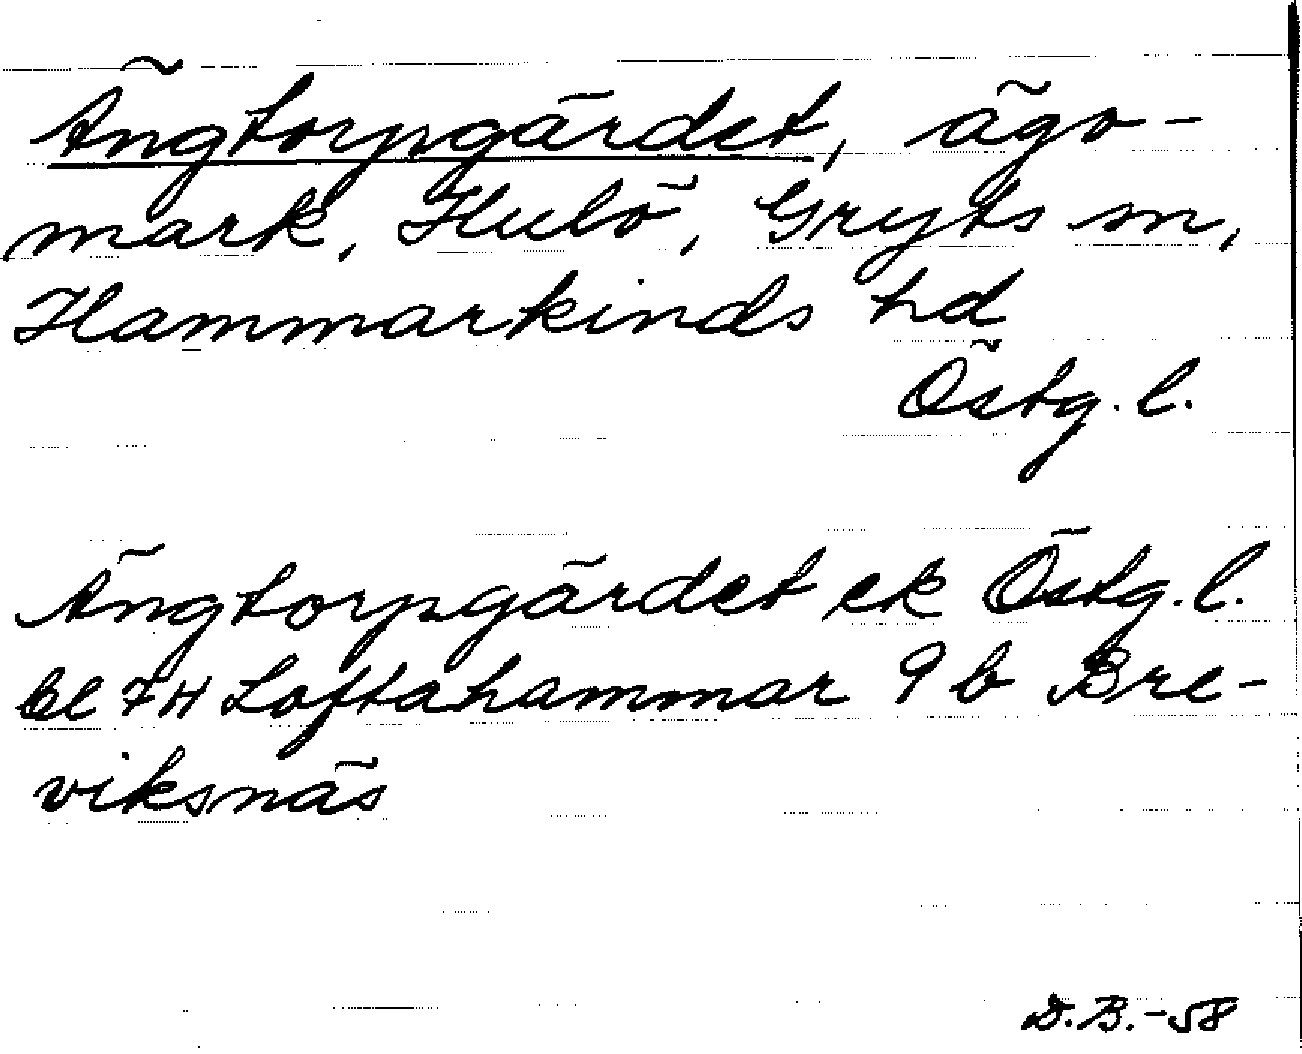 Ängtorpgärdet, ägo-
mark, Hulö, Gryts sn,
Hammarkinds hd
Östg. l.
Ängtorpgärdet ek Östg. l.
bl 7 H Loftahammar 9 b Bre-
viksnäs
D.B. -58